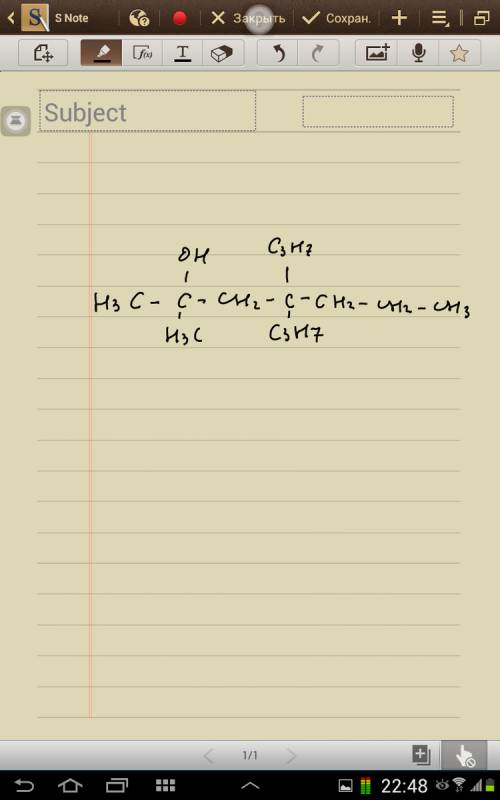 S Note
Закрыть
Сохран.
f(x)
T
Subject
OH C3H7
H3C - C - CH2 - C - CH2 - CH2 - CH3
H3C C3H7
1/1
22:48